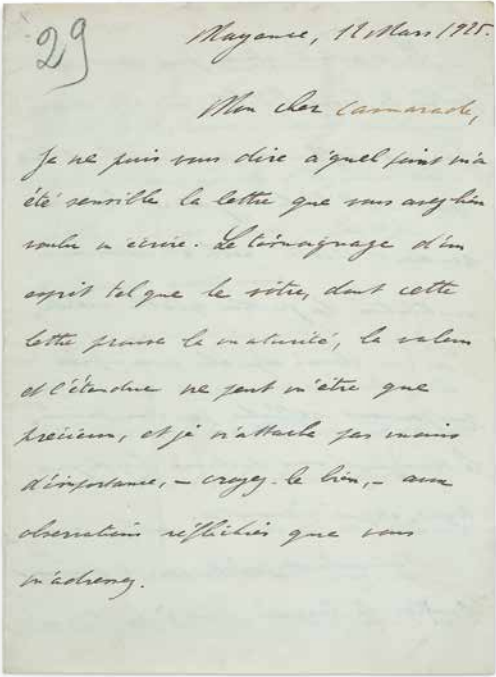 29
Mayence, 12 Mars 1925.
Mon cher camarade,
Je ne puis vous dire à quel point m'a
été sensible la lettre que vous avez bien
voulu m'écrire. Le témoignage d'un
esprit tel que le vôtre, dont cette
lettre prouve la maturité, la valeur
et l'étendue ne peut m'être que
précieux, et je n'attache pas moins
d'importance, – croyez-le bien, – aux
observations réfléchies que vous
m'adressez.